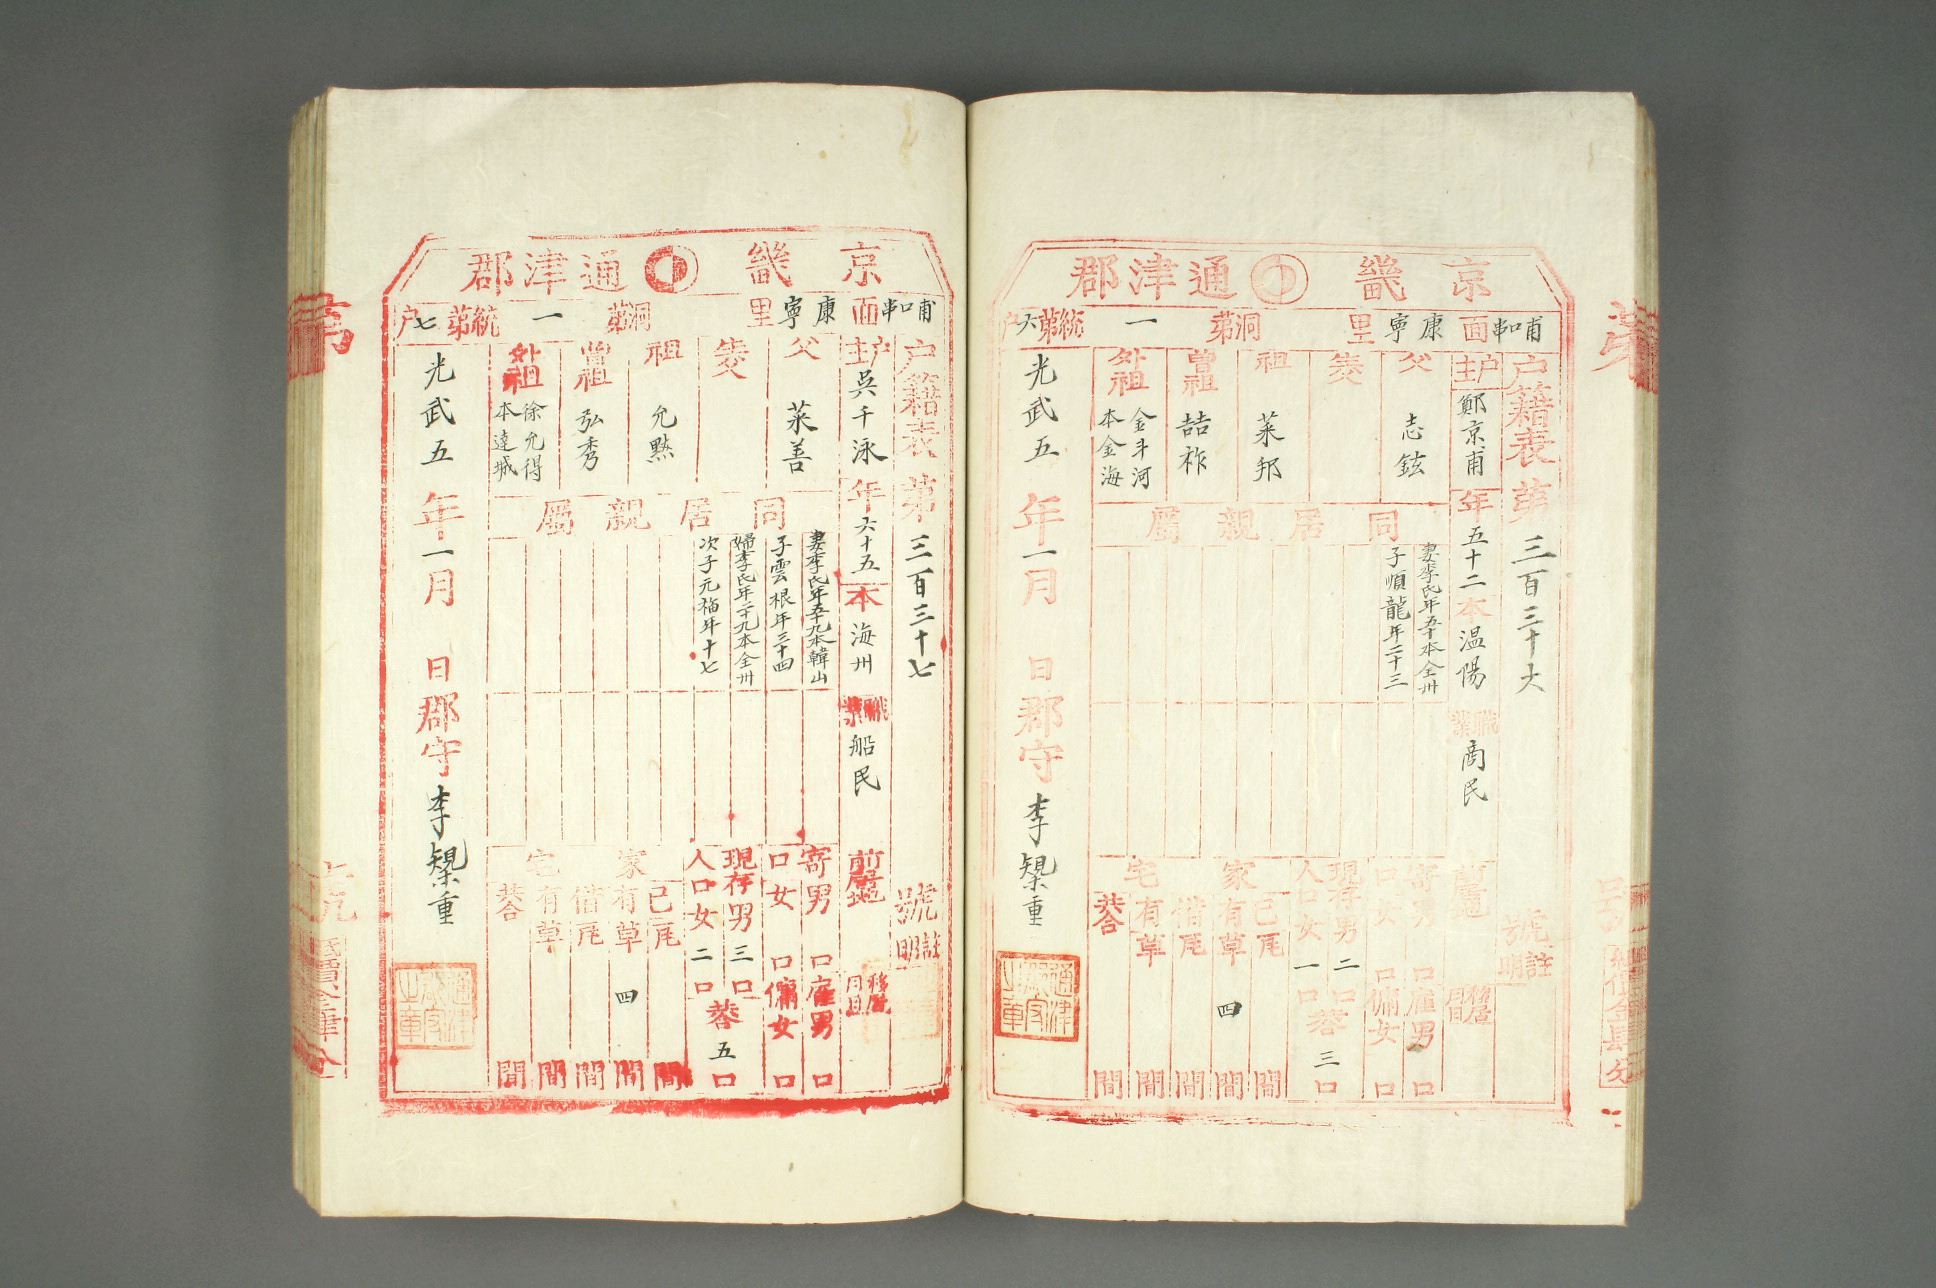 京畿 通津郡
甫口串面 康寧里 洞第一統第六户
户籍表 第三百三十六號 註明
户主 鄭京甫 年五十二 本温陽 職業 商民 前居地 移居月日
父 志鉉
生父
祖 萊邦
曾祖 喆祚
外祖 金斗河 本金海
同居親屬
妻李氏年五十本全州
子順龍年二十三
寄口 男 口 女 口
雇男 口 傭女 口
現存人口 男二口 女一口 共三口
家宅 己有 瓦 間 草四間
借有 瓦 間 草 間
共合 間
光武五年一月 日郡守李 重
京畿 通津郡
甫口串面 康寧里 洞第一統第七户
户籍表 第三百三十七號 註明
户主 吳千泳 年六十五 本海州 職業 船民 前居地 移居月日
父 萊善
生父
祖 允黙
曾祖 弘秀
外祖 徐允得 本達城
同居親屬
妻李氏年五十九本韓山
子雲根年三十四
婦李氏年二十九本全州
次子元福年十七
寄口 男 口 女 口
雇男 口 傭女 口
現存人口 男三口 女二口 共五口
家宅 己有 瓦 間 草四間
借有 瓦 間 草 間
共合 間
光武五年一月 日郡守李 重